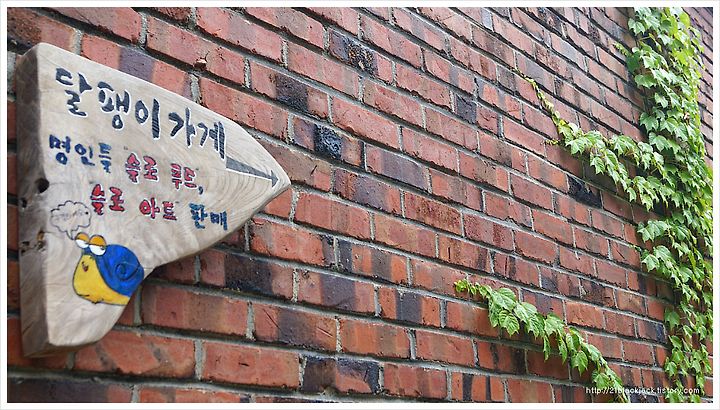 달팽이가게
명인들 "슬로 푸드",
"슬로 아트" 판매
http://21blackjack.tistory.com/